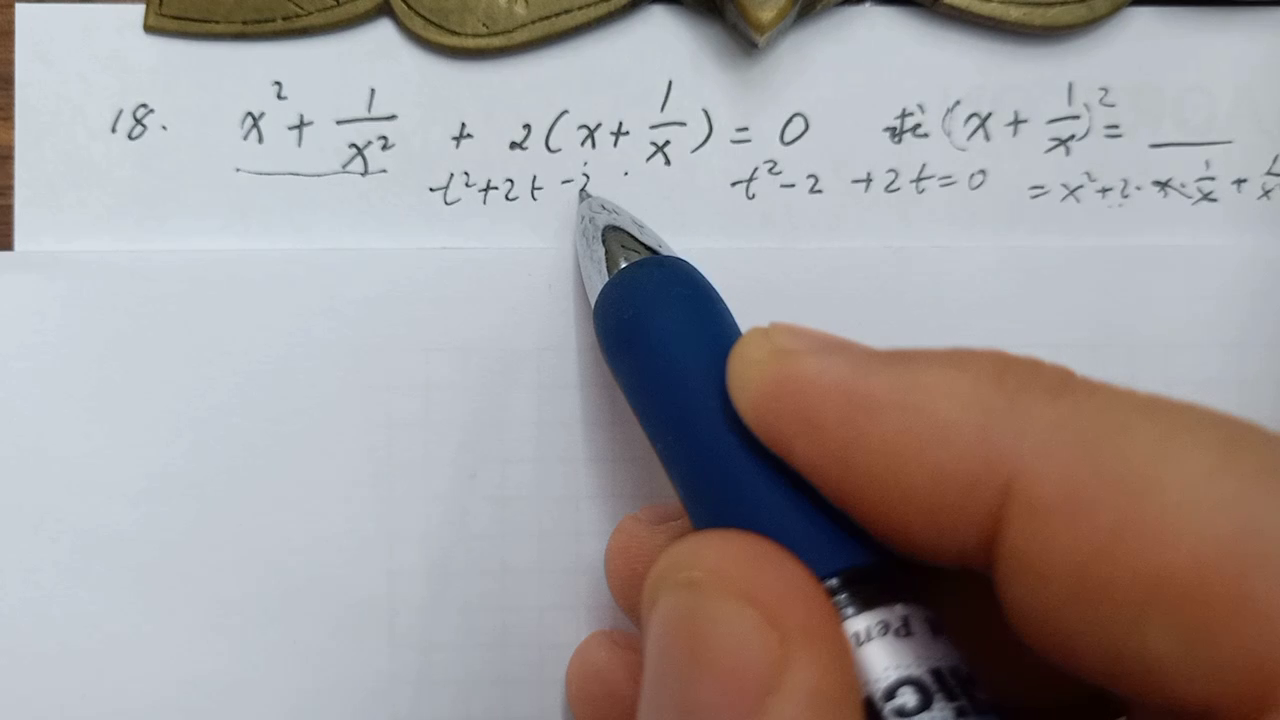 18. x² + 1/x² + 2(x + 1/x) = 0 求(x + 1/x)² = __
t²+2t-2 t²-2+2t=0 =x²+2·x·1/x+
Pen